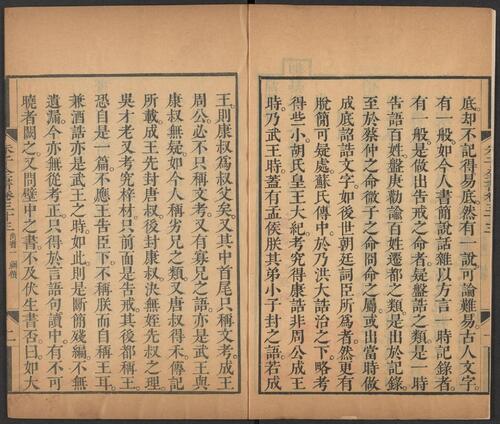 底。却不記得易底。然有一說可論難易。古人文字。
有一般。如今人書簡說話。雜以方言。一時記錄者。
有一般。是做出告戒之命者。疑盤誥之類。是一時
告語百姓。盤庚勸諭百姓遷都之類。是出於記錄。
至於蔡仲之命。微子之命。冏命之屬。或出當時做
成底詔誥文字。如後世朝廷詞臣所為者。然更有
脫簡可疑處。蘇氏傳中。於乃洪大誥治之下。略考
得些小。胡氏皇王大紀。考究得康誥非周公成王
時。乃武王時。蓋有孟侯朕其弟小子封之語。若成
王。則康叔為叔父矣。又其中首尾只稱文考。成王
周公。必不只稱文考。又有寡兄之語。亦是武王與
康叔無疑。如今人稱劣兄之類。又唐叔得禾。傳記
所載。成王先封唐叔。後封康叔。決無姪先叔之理。
吳才老又考究梓材。只前面是告戒。其後都稱王。
恐自是一篇。不應王告臣下。不稱朕而自稱王耳。
兼酒誥亦是武王之時。如此則是斷簡殘編。不無
遺漏。今亦無從考正。只得於言語句讀中。有不可
曉者闕之。又問。壁中之書。不及伏生書否。曰。如大